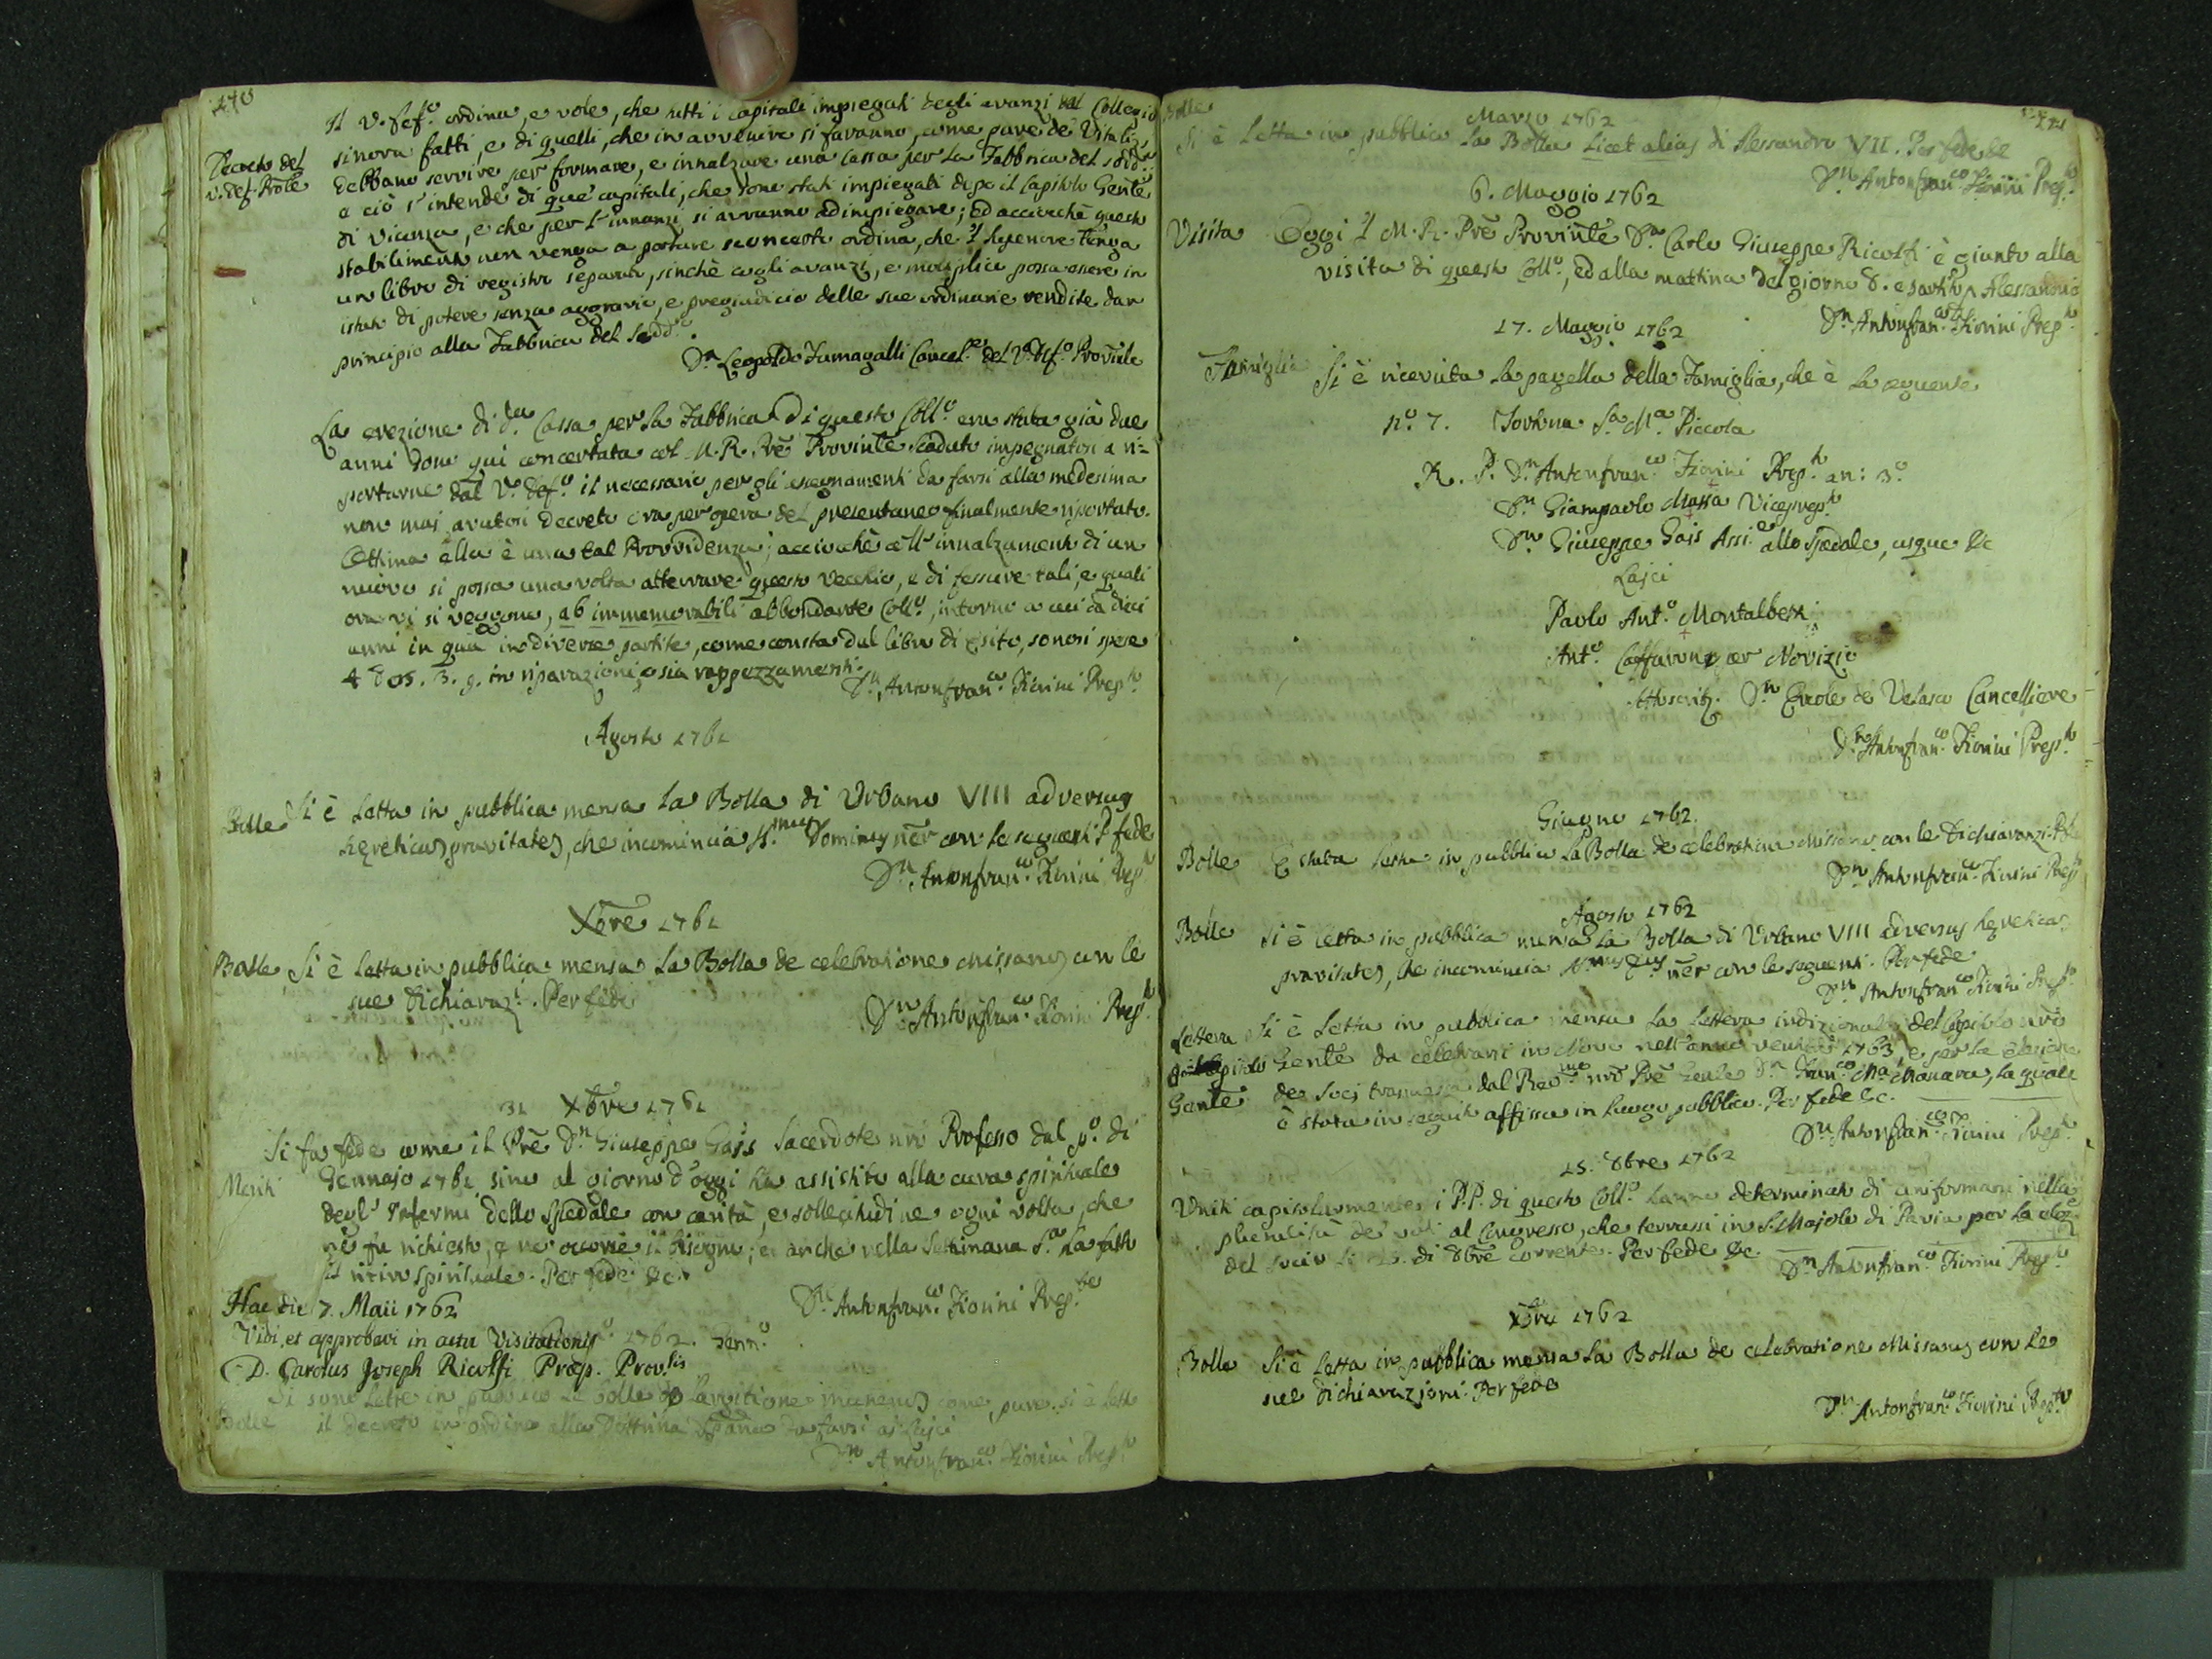 270
Decreto del
v. Def. Prôle
Il V. Def.º ordina, e vole, che tutti i capitali impiegati degli avanzi dal Collegio
sinora fatti, e di quelli, che in avvenire si faranno, come pure de' Vitalizj
debbano servire per formare, e innalzare una Cassa per la Fabbrica del sodd.º
e ciò s'intende di que' capitali, che sono stati impiegati dopo il Capitolo Genl̃e
di Vicenza, e che per l'innanzi si avranno ad impiegare; Ed acciocchè questo
stabilimento non venga a portare sconcerto ordina, che 'l Superiore tenga
un libro di registro separato, sinchè cogli avanzi, e moltiplico possa essere in
istato di potere senza aggravio, e pregiudicio delle sue ordinarie rendite dar
principio alla Fabbrica del Sodd.º
Dn. Leopoldo Fumagalli Cancel.re del V. Def.º Provĩale
La erezione di d.a Cassa per la Fabbrica di questo Coll.º era stata già due
anni sono qui concertata col M. R. Prẽ Provinl̃e scaduto impegnatosi a ri=
portarne dal V. Def.º il necessario per gli assegnamenti da farsi alla medesima
non mai avutosi Decreto ora per opera del presentaneo finalmente riportato.
Ottima ella è una tal Provvidenza; acciocchè coll'innalzamento di un
nuovo si possa una volta atterrare questo vecchio, e di fessure tali, e quali
ora vi si veggono, ab immemorabili abbondante Coll.º, intorno a cui da dieci
anni in quà in diverse partite, come consta dal libro di Esito, sonosi spese
4805. 3. 9. in riparazioni, o sia rappezzamenti.
Dn. Antonfran.co Fiorini Prep.to
Agosto 1761
Bolle Si è letta in pubblica mensa la Bolla di Urbano VIII adversus
hereticas pravitates, che incomincia SS.mus Dominus nẽr con le seguenti P fede
Dn. Antonfran.co Fiorini Prep.to
Xbre 1761
Bolle Si è letta in pubblica mensa la Bolla de celebratione Missarum con le
sue dichiaraz.i Per fede
Dn. Antonfran.co Fiorini Prep.to
31 Xbre 1761
Si fa fede come il Prẽ Dn. Giuseppe Gajs Sacerdote nrõ Professo dal p.º di
Meriti Gennajo 1761 sino al giorno d'oggi ha assistito alla cura spirituale
degl' Infermi dello Spedale con carità, e sollecitudine ogni volta, che
ne fu richiesto, e ne occorse il bisogno; e anche nella Settimana S.ta ha fatto
il ritiro spirituale. Per fede &c.
Dn. Antonfran.co Fiorini Prep.to
Hac die 7. Maii 1762
Vidi, et approbavi in actu Visitationis
1762. Genn.º
D. Carolus Joseph Ricolfi Præp. Prov.lis
Si sono lette in pubblico le Bolle de largitione munerum come pure si è letto
Bolle il decreto in ordine alla Dottrina Xpãna da farsi ai Laici
Dn. Antonfran.co Fiorini Prep.to
271
Bolle
Marzo 1762
Si è letta in pubblico la Bolla Licet alias di Alessandro VII. Per fede &c
Dn. Antonfran.co Fiorini Prep.to
6. Maggio 1762
Visita Oggi 'l M. R. Prẽ Provinl̃e Dn. Carlo Giuseppe Ricolfi è giunto alla
visita di questo Coll.º, ed alla mattina del giorno 8. è partito p Alessandria
Dn. Antonfran.co Fiorini Prep.to
17. Maggio 1762
Famiglia Si è ricevuta la pagella della Famiglia, che è la seguente
n.º 7. Tortona S.a M.a Piccola
R. P. Dn. Antonfran.co Fiorini Prep.to an: 3.º
Dn. Giampaolo Massa Viceprep.to
Dn. Giuseppe Gajs Assi.e allo Spedale, usque &c
Laici
Paolo Ant.º Montalbetti
Ant.º Caffarone per Novizio
Dn. Ercole de Velasco Cancelliere
Dn. Antonfran.co Fiorini Prep.to
Giugno 1762.
Bolle È stata letta in pubblico la Bolla de celebratione Missarum con le dichiarazi. P fe
Dn. Antonfran.co Fiorini Prep.to
Agosto 1762
Bolle Si è letta in pubblica mensa la Bolla di Urbano VIII adversus hereticas
pravitates, che incomincia SS.mus Dnus nẽr con le seguenti. Per fede
Dn. Antonfran.co Fiorini Prep.to
Lettera Si è letta in pubblica mensa la lettera indizionale del Capitolo nrõ
Capitolo Genl̃e da celebrarsi in nell'anno venturo 1763, e per la elezione
Genl̃e de' Socj trasmessa dal Rev.mo nrõ Prẽ Genl̃e Dn. Fran.co Ma. Manara, la quale
è stata in seguito affissa in luogo pubblico. Per fede &c.
Dn. Antonfran.co Fiorini Prep.to
15. 8bre 1762
Uniti capitolarmente i P.P. di questo Coll.º hanno determinato di uniformarsi nella
pluralità de' voti al Congresso, che terrassi in S. Majolo di Pavia per la elez.e
del Socio li di 8bre corrente. Per fede &c.
Dn. Antonfran.co Fiorini Prep.to
Xbre 1762
Bolle Si è letta in pubblica mensa la Bolla de celebratione Missarum con le
sue dichiarazioni. Per fede
Dn. Antonfran.co Fiorini Prep.to